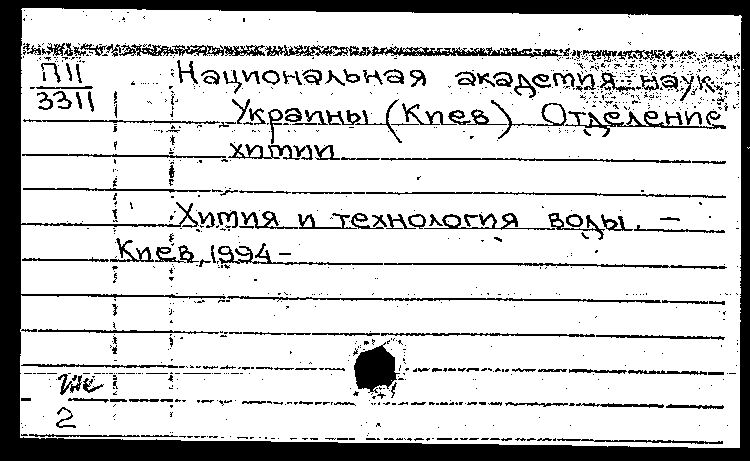 П11
3311
Национальная академия наук
Украины (Киев) Отделение
химии
Химия и технология воды. —
Киев, 1994 –
2